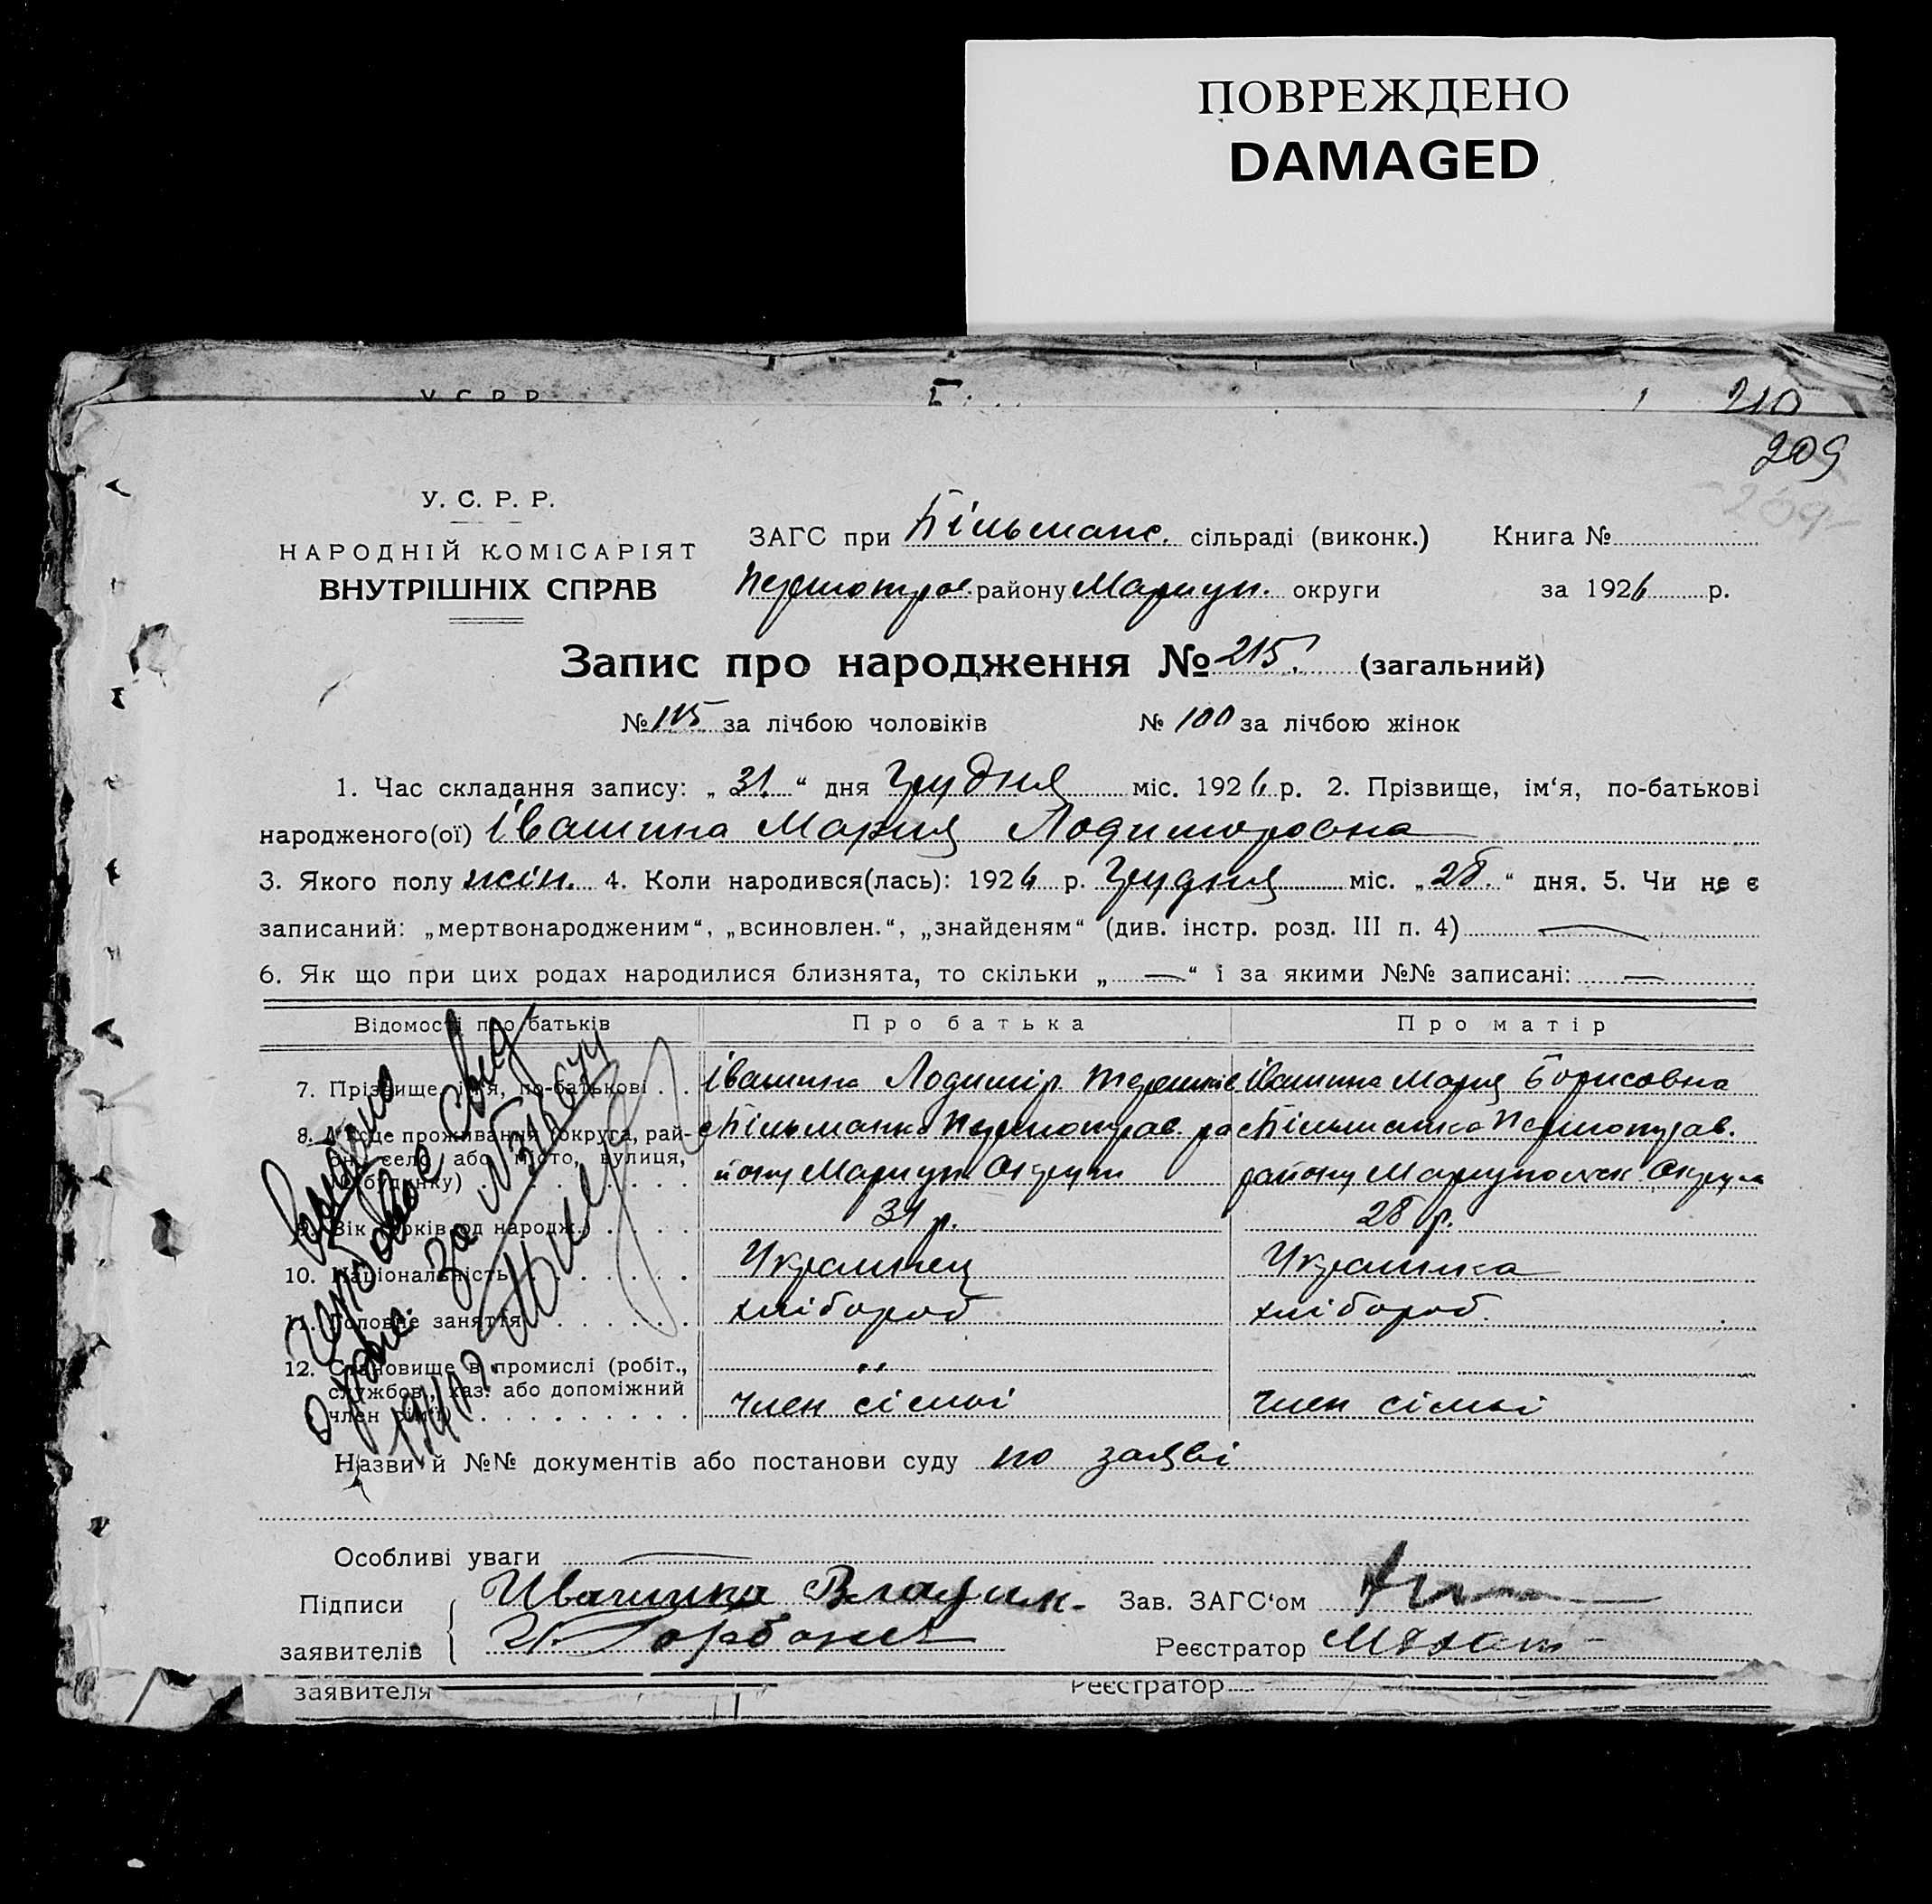 ПОВРЕЖДЕНО
DAMAGED
У. С. Р. Р.
210
209
209
У. С. Р. Р.
НАРОДНІЙ КОМІСАРІЯТ
ВНУТРІШНІХ СПРАВ
ЗАГС при Більманс. сільраді (виконк.) Книга №
Першотрав. району Мариуп. округи за 1926 р.
Запис про народження № 215. (загальний)
№ 115 за лічбою чоловіків № 100 за лічбою жінок
1. Час складання запису: „ 31. “ дня Грудня міс. 1926 р. 2. Прізвище, ім‘я, по-батькові
народженого(ої) Івашина Мария Лодиморовна
3. Якого полу жін. 4. Коли народився(лась): 1926 р. Грудня міс. „ 28. “ дня. 5. Чи не є
записаний: „мертвонародженим“, „всиновлен.“, „знайденям“ (див. інстр. розд. III п. 4) —
6. Як що при цих родах народилися близнята, то скільки „ — “ і за якими №№ записані: —
Відомості про батьків Про батька Про матір
7. Прізвище, ім‘я, по-батькові . . Івашина Лодимір Івашина Мария Борисовна
8. Місце проживання (округа, рай-
он, село або місто, вулиця,
№ будинку) . . . . . . . . .
с Більманка Першотрав. ра
йону Мариуп. Округи
с Більманка Першотрав.
району Мариупольск Округи
9. Вік (років од народж.) . . . . 31 р. 28 р.
10. Національність . . . . . . . Украинец Украинка
11. Головне заняття . . . . . . . хлібороб хлібороб.
12. Становище в промислі (робіт.,
службов., хаз. або допоміжний
член сім‘ї) . . . . . . . . . .
„ член сімьі член сімьі
Выдано
за №
Назви й №№ документів або постанови суду по заяві
Особливі уваги —
Підписи
заявителів
Ивашина Владим.
Зав. ЗАГС‘ом
Реєстратор
заявителя Реєстратор